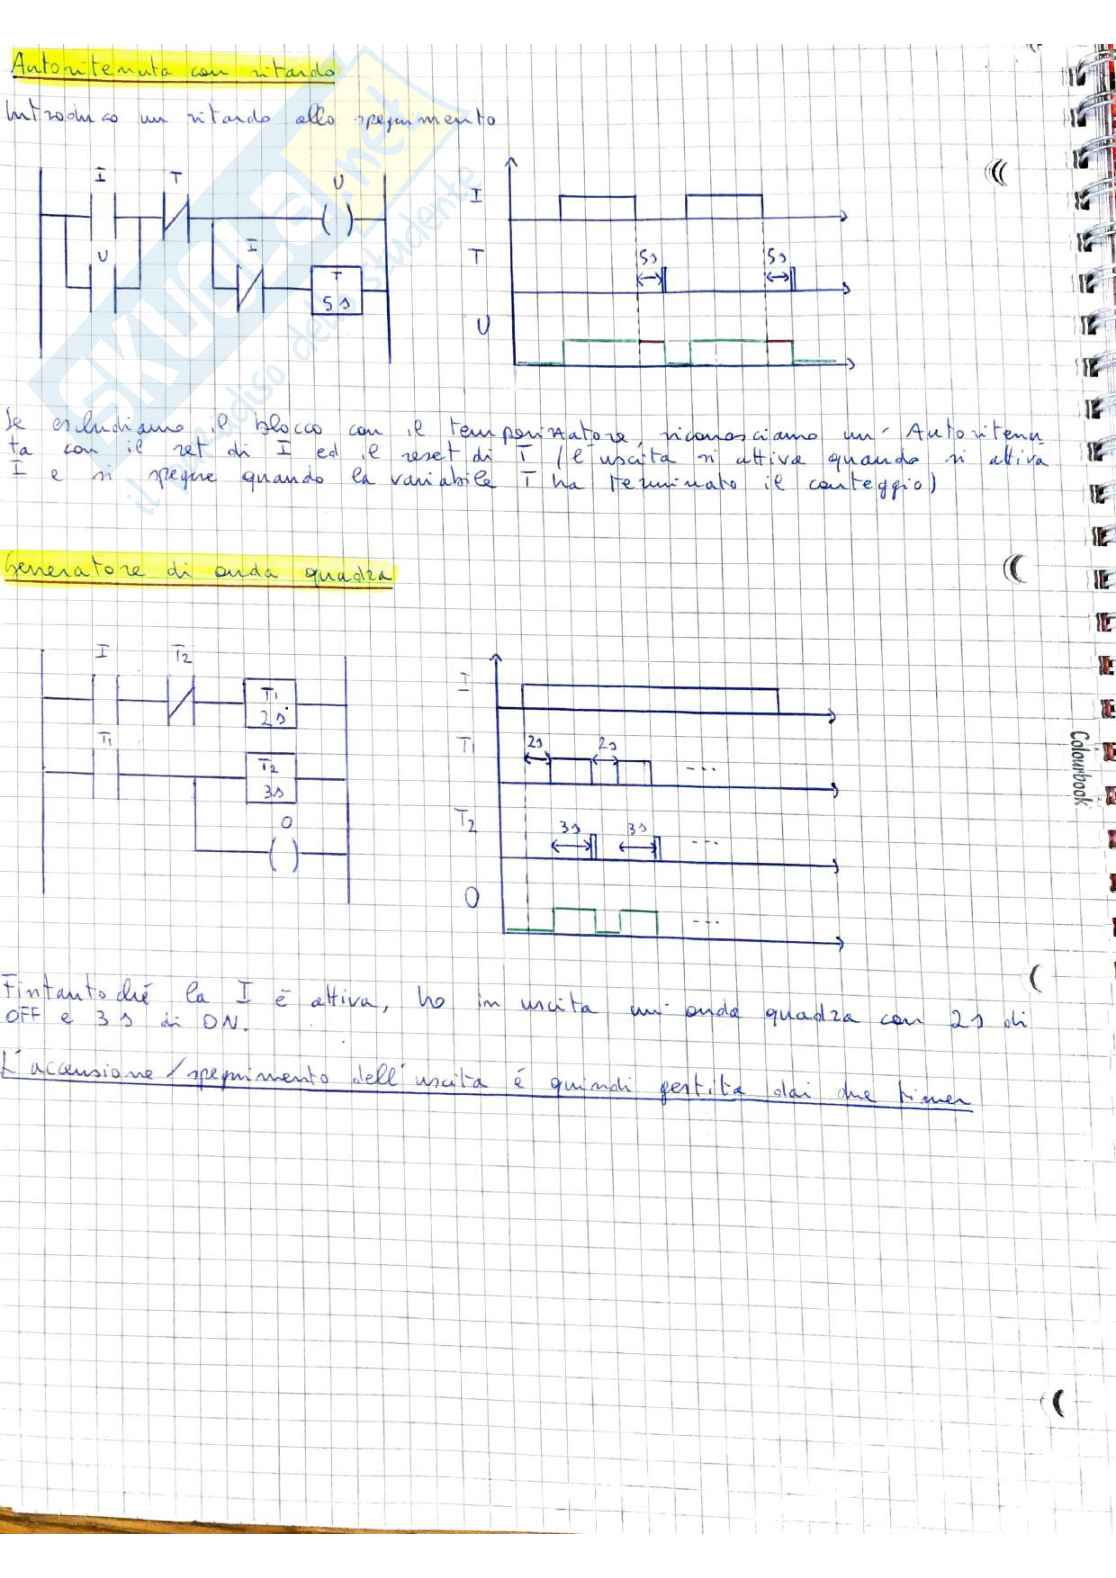 Autoritenuta con ritardo
Introduco un ritardo allo spegnimento
I T U
U I T
5s
I
T 5s 5s
U
Se escludiamo il blocco con il temporizzatore, riconosciamo un' Autoritenu
ta con il set di I ed il reset di T (l'uscita si attiva quando si attiva
I e si spegne quando la variabile T ha terminato il conteggio)
Generatore di onda quadra
I T2 T1
2s
T1 T2
3s
O
I
T1 2s 2s ---
T2 3s 3s ---
O ---
Fintanto ché la I è attiva, ho in uscita un' onda quadra con 2s di
OFF e 3s di ON.
L'accensione/spegnimento dell'uscita é quindi gestita dai due timer
Colourbook
SKUOLA.net
il paradiso dello studente